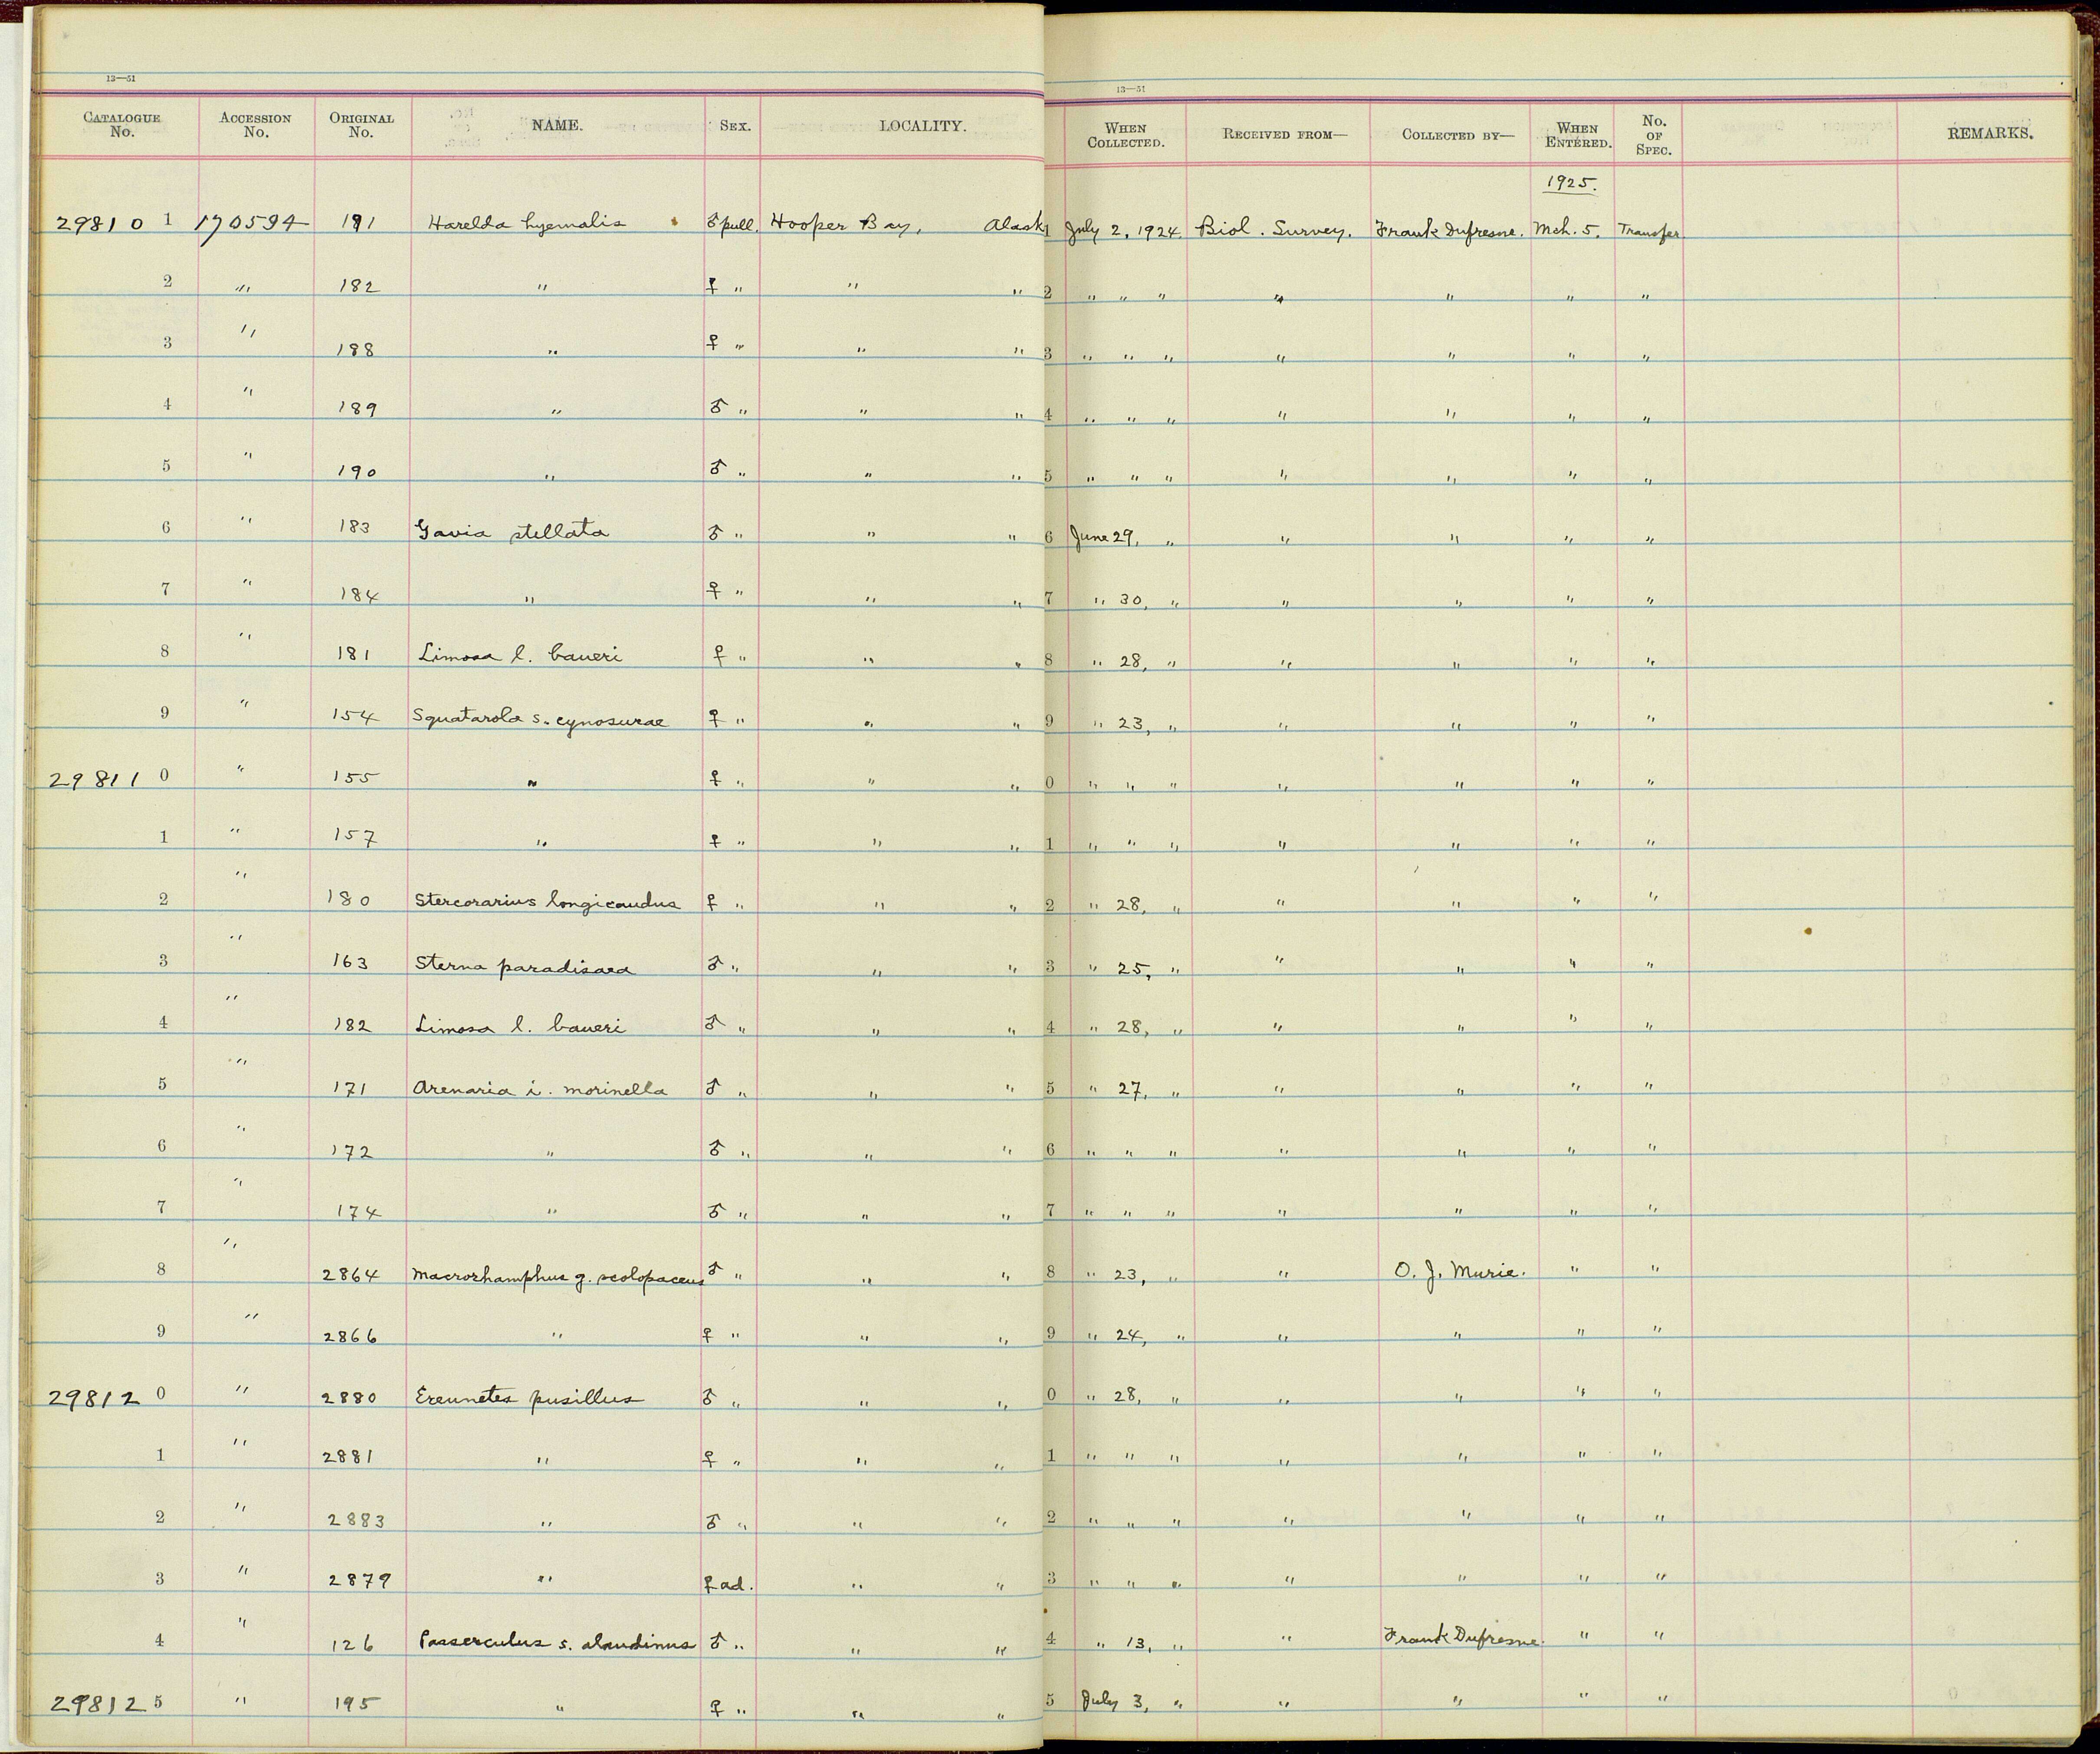 13—51 13—51
CATALOGUE No. ACCESSION No. ORIGINAL No. NAME. SEX. LOCALITY. WHEN COLLECTED. RECEIVED FROM— COLLECTED BY— WHEN ENTERED. No. OF SPEC. REMARKS.
1925.
29810 1 170594 191 Harelda hyemalis ♂ pull. Hooper Bay, Alaska 1 July 2, 1924 Biol. Survey. Frank Dufresne. Mch. 5. Transfer
2 " 182 " ♀ " " " 2 " " " " " " "
3 " 188 " ♀ " " " 3 " " " " " " "
4 " 189 " ♂ " " " 4 " " " " " " "
5 " 190 " ♂ " " " 5 " " " " " " "
6 " 183 Gavia stellata ♂ " " " 6 June 29, " " " " "
7 " 184 " ♀ " " " 7 " 30, " " " " "
8 " 181 Limosa l. baueri ♀ " " " 8 " 28, " " " " "
9 " 154 Squatarola s. cynosurae ♀ " " " 9 " 23, " " " " "
29811 0 " 155 " ♀ " " " 0 " " " " " " "
1 " 157 " ♀ " " " 1 " " " " " " "
2 " 180 Stercorarius longicaudus ♀ " " " 2 " 28, " " " " "
3 " 163 Sterna paradisaea ♂ " " " 3 " 25, " " " " "
4 " 182 Limosa l. baueri ♂ " " " 4 " 28, " " " " "
5 " 171 Arenaria i. morinella ♂ " " " 5 " 27, " " " " "
6 " 172 " ♂ " " " 6 " " " " " " "
7 " 174 " ♂ " " " 7 " " " " " " "
8 " 2864 Macrorhamphus g. scolopaceus ♂ " " " 8 " 23, " " O. J. Murie. " "
9 " 2866 " ♀ " " " 9 " 24, " " " " "
29812 0 " 2880 Ereunetes pusillus ♂ " " " 0 " 28, " " " " "
1 " 2881 " ♀ " " " 1 " " " " " " "
2 " 2883 " ♂ " " " 2 " " " " " " "
3 " 2879 " ♀ ad. " " 3 " " " " " " "
4 " 126 Passerculus s. alaudinus ♂ " " " 4 " 13, " " Frank Dufresne. " "
29812 5 " 195 " ♀ " " " 5 July 3, " " " " "